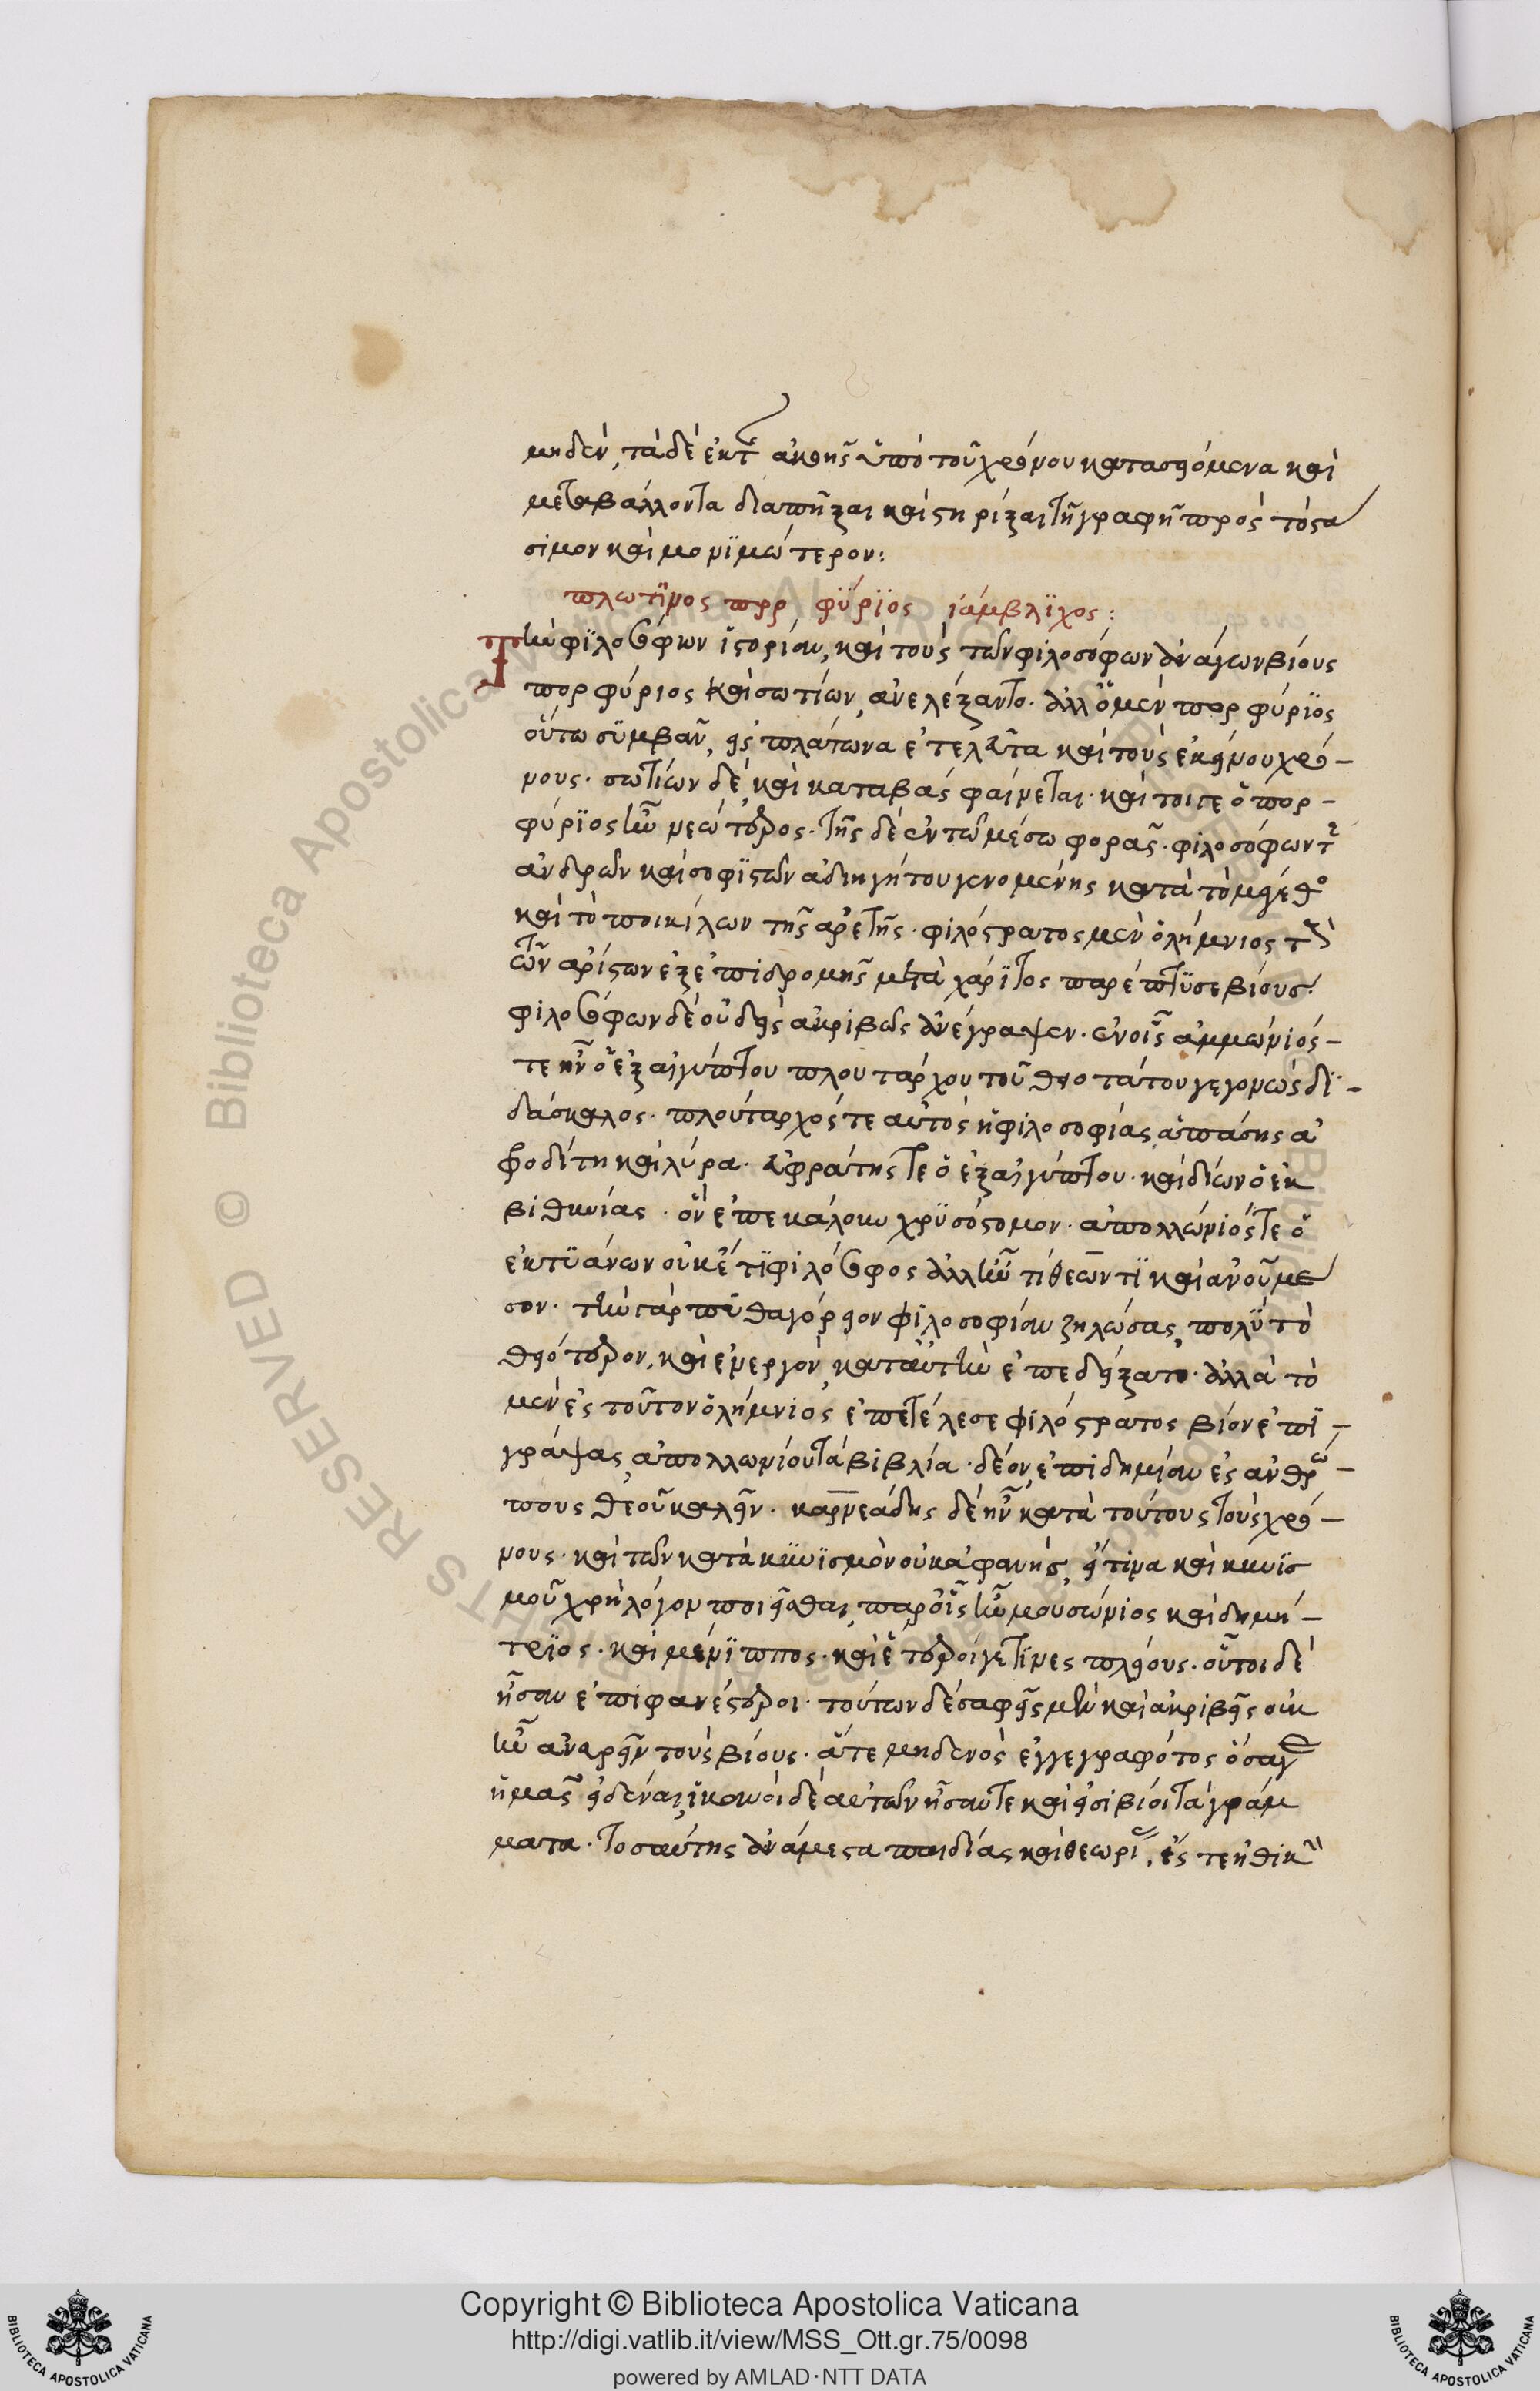 μηδὲν, τὰ δὲ ἐκ τ ἀκοῆς ὑπὸ τοῦ χρόνου κατασχόμενα καὶ
μεταβάλλοντα διαπῆξαι καὶ στηρίξαι τῆ γραφῆ πρὸς τὸ στα
σιμον καὶ μονϊμώτερον:
πλωτῖνος πορ φύρϊος ἰάμβλϊχος:
Τὴν φϊλοσόφων ἱστορίαν, καὶ τοὺς τῶν φιλοσόφων ἀνδρῶν βίους
πορφύριος καὶ σωτίων, ἀνελέξαντο. ἀλλ ὁ μὲν πορφύρϊος
οὕτω συμβὰν, εἰς πλάτωνα ἐτελεύτα καὶ τοὺς ἐκείνου χρό-
νους. σωτίων δὲ, καὶ καταβὰς φαίνεται. καὶ τοί γε ὁ πορ-
φύρϊος ἦν νεώτερος. τῆς δὲ ἐν τῶ μέσω φορᾶς. φιλοσόφων τ
ἀνδρῶν καὶ σοφϊστῶν ἀδιηγήτου γενομένης κατὰ τὸ μέγεθο
καὶ τὸ ποικίλων τῆς ἀρετῆς. φιλόστρατος μὲν ὁ λήμνιος τοὺ
τῶν ἀρίστων ἐξ ἐπιδρομῆς μετὰ χάρϊτος παρέπτϋσε βίους.
φιλοσόφων δὲ οὐδεὶς ἀκριβῶς ἀνέγραψεν. ἐν οἷς ἀμμώνιός-
τε ἦν ὁ ἐξ αἰγύπτου πλουτάρχου τοῦ θειοτάτου γεγονὼς δϊ-
δάσκαλος. πλούταρχός τε αὐτὸς ἡ φιλοσοφίας ἁπάσης ἀ
φροδίτη καὶ λύρα. εὐφράτης τε ὁ ἐξ αἰγύπτου. καὶ δίων ὁ ἐκ
βιθυνίας. ὃν ἐπεκάλουν χρϋσόστομον. ἀπολλώνιός τε ὁ
ἐκ τϋάνων οὐκέτϊ φιλόσοφος ἀλλ ἦν τὶ θεῶν τϊ καὶ ἀνοῦ με
σον. τὴν γὰρ πϋθαγόρειον φϊλοσοφίαν ζηλώσας, πολὺ τὸ
θειότερον, καὶ ἐνεργὸν κατ αὐτὴν ἐπεδείξατο. ἀλλὰ τὸ
μὲν ἐς τοῦτον ὁ λήμνιος ἐπετέλεσε φιλόστρατος βίον ἐπϊ-
γράψας, ἀπολλωνίου τὰ βιβλία. δέον, ἐπιδημίαν ἐς ἀνθρώ-
πους θεοῦ καλεῖν. καρνεάδης δὲ ἦν κατὰ τούτους τοὺς χρό-
νους. καὶ τῶν κατὰ κϋνϊσμὸν οὐκ ἀφανὴς, εἴ τινα καὶ κυνϊσ
μοῦ χρὴ λόγον ποιεῖσθαι, παρ οἷς ἦν μουσώνιος καὶ δημή-
τρϊος. καὶ μένϊππος. καὶ ἕτεροί γε τϊνες πλείους. οὗτοι δὲ
ἦσαν ἐπιφανέστεροι. τούτων δὲ σαφεῖς μὲν καὶ ἀκριβεῖς οὐκ
ἦν ἀνευρεῖν τοὺς βίους. ἅτε μηδενὸς ἐγγεγραφότος ὅσα γ
ἡμᾶς εἰδέναι, ἱκανοὶ δὲ αὐτῶν ἦσάν τε καὶ εἰσὶ βίοι τὰ γράμ
ματα. τοσαύτης ἀνάμεστα παιδίας καὶ θεωρί, ἔς τε ἠθικ